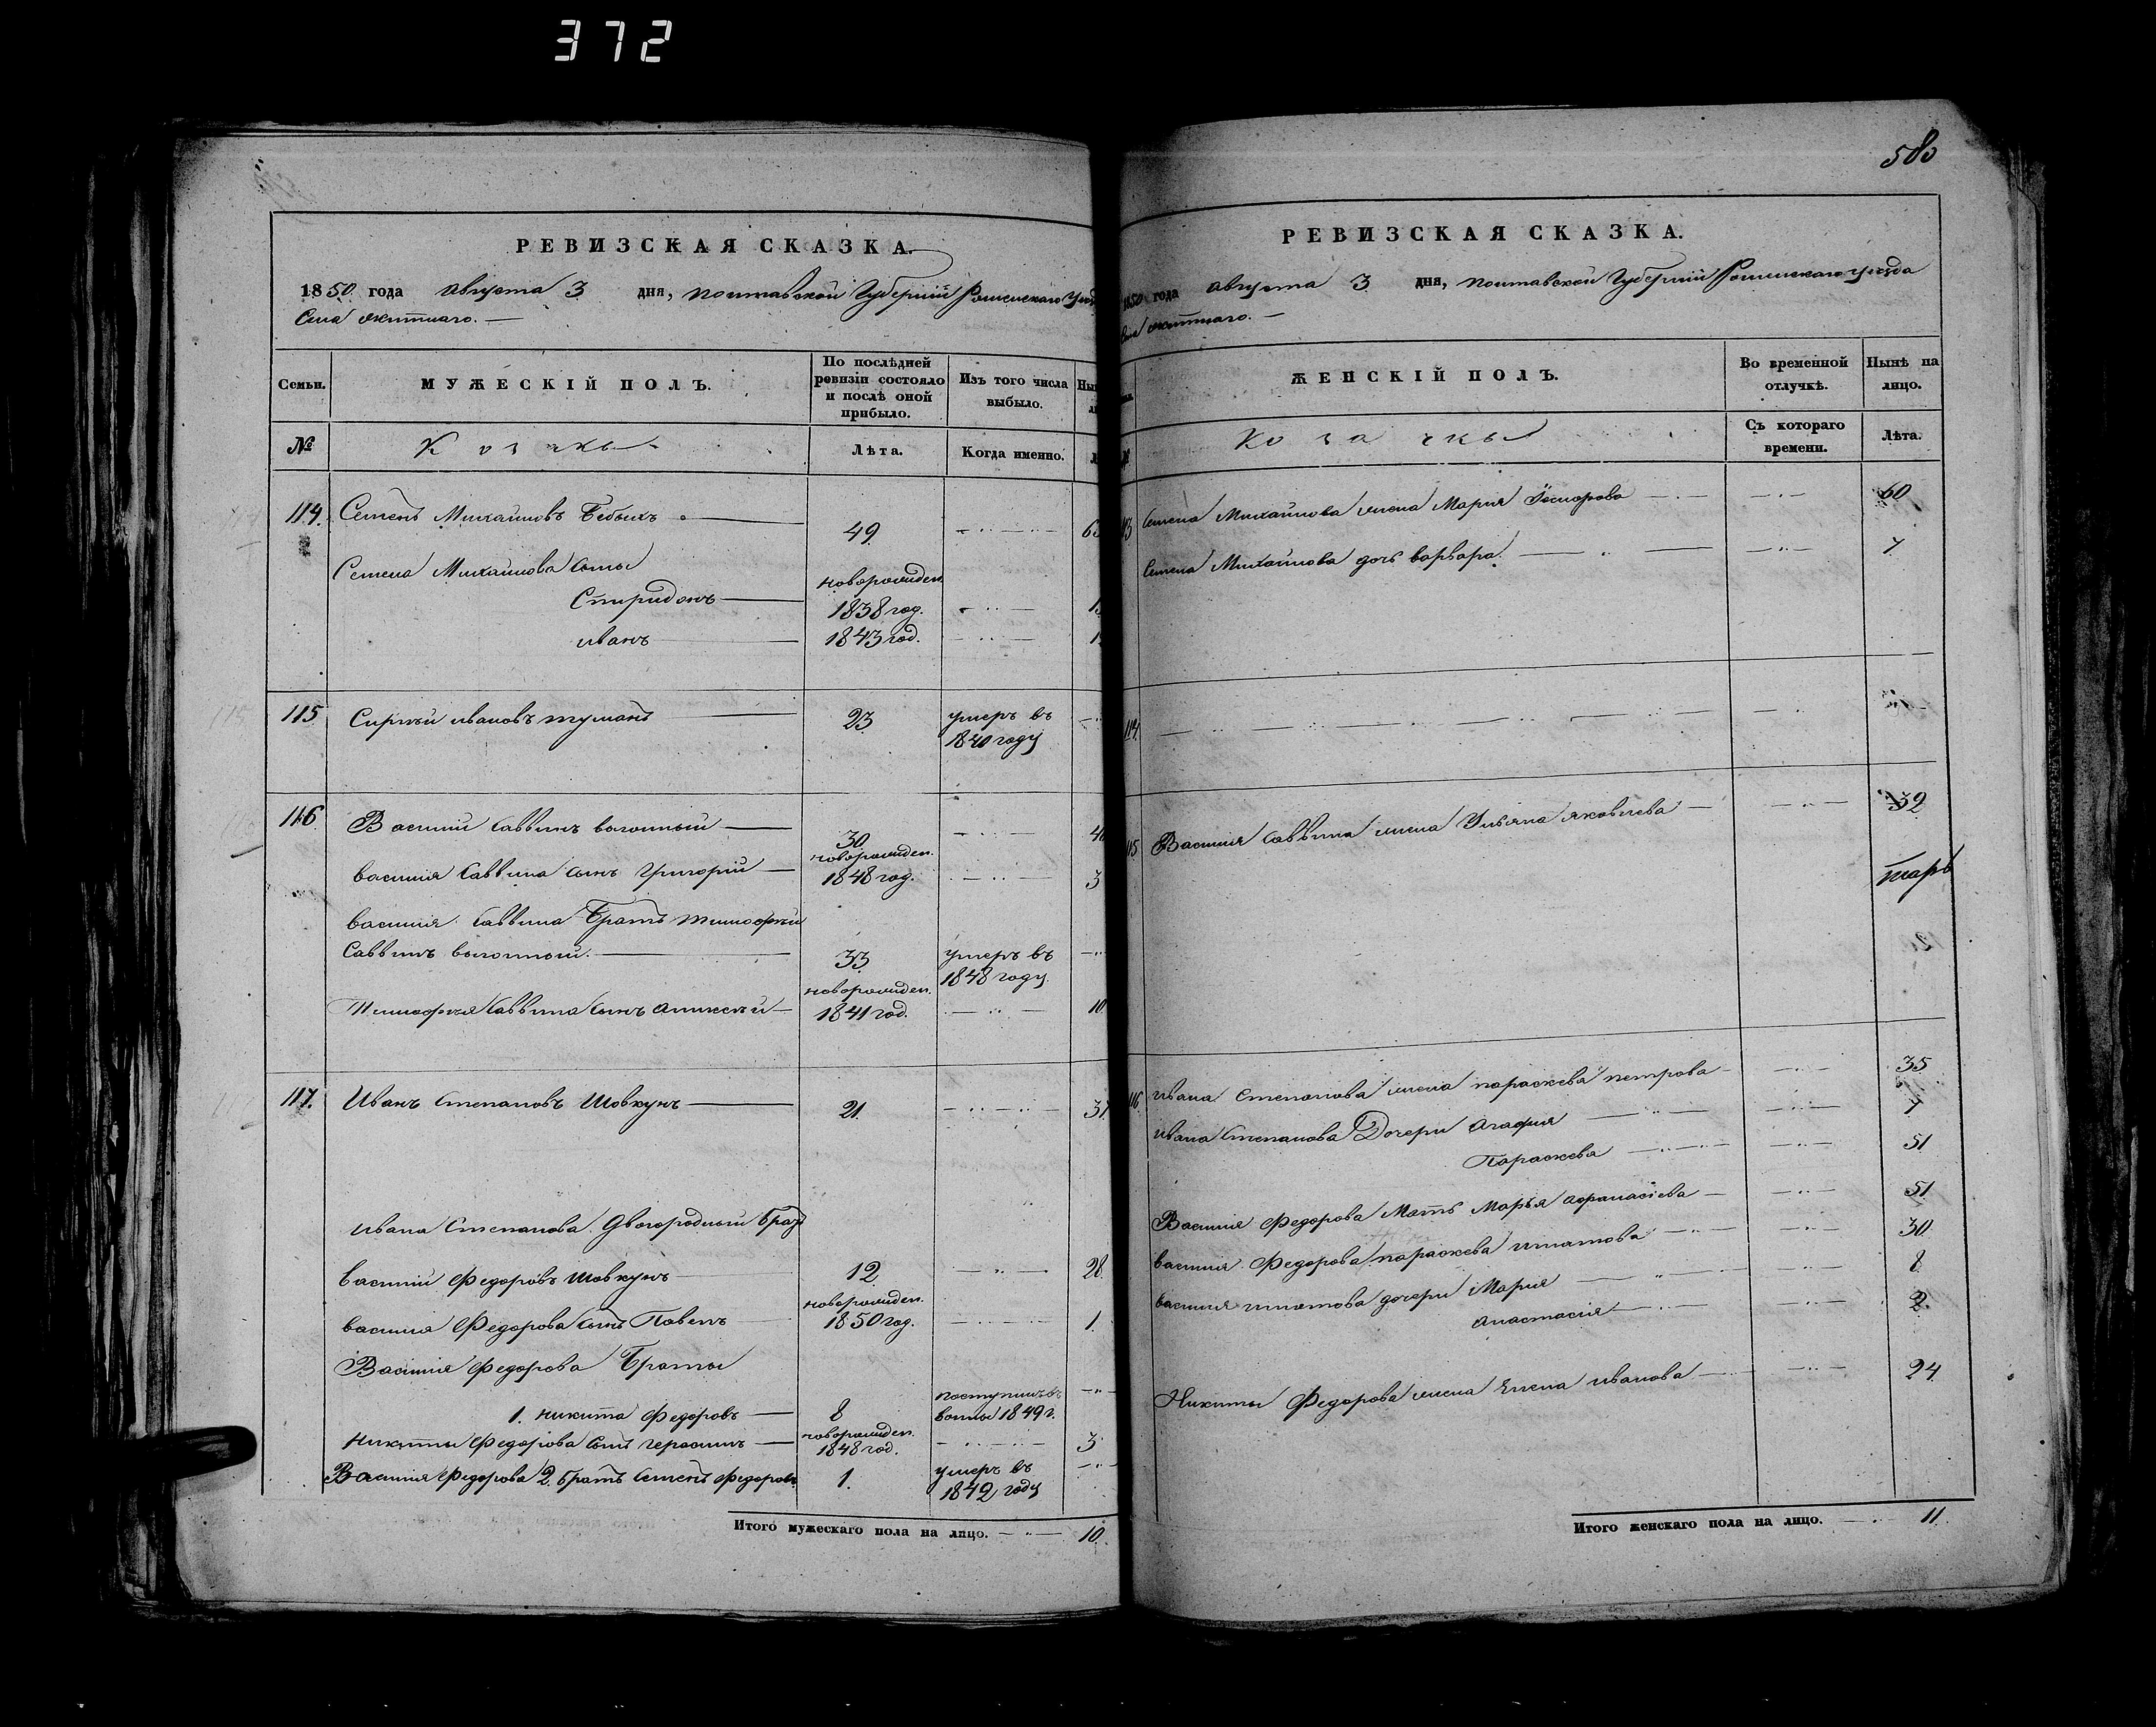 372
РЕВИЗСКАЯ СКАЗКА.
1850 года августа 3 дня, Полтавской Губернии Роменскаго Уезд
Села
Семьи.
МУЖЕСКІЙ ПОЛЪ.
По послѣдней ревизіи состояло и послѣ оной прибыло.
Изъ того числа выбыло.
№
Козаки
Лѣта.
Когда именно.
114. Семенъ Михайловъ 49 — 63
Семена Михайлова сыны
новорожден.
Спиридонъ — 1838 год. —
иванъ — 1843 год. —
115 Сиргѣй ивановъ туманъ — 23 умеръ въ
1840 году
116 Василій Саввинъ — 30 — 46
новорожден.
василия Саввина сынъ Григорій — 1848 год. — 3
василия Саввина Братъ тимофѣй
Саввинъ — 33 умеръ въ
1848 году
новорожден.
Тимофѣя Саввина сынъ алиексѣй — 1841 год. — 10.
117. Иванъ Степановъ Шовкунъ — 21. — 37.
ивана Степанова Двогородный Брат
василий Федоровъ шовкунъ 12 — 28.
новорожден.
василия Федорова сынъ Павелъ 1850 год. — 1.
Василия Федорова Браты
поступилъ въ
1. никита Федоровъ — 8 1849 г.
новорожден.
никиты Федорова сынъ герасимъ — 1848 год. — 3
Василия Федорова 2. братъ Семенъ Федоровъ 1. умеръ въ
1842 году
Итого мужескаго пола на лицо. — 10.
580
РЕВИЗСКАЯ СКАЗКА.
1850 года августа 3 дня, Полтавской Губернии Роменскаго уезда
Села
ЖЕНСКІЙ ПОЛЪ.
Во временной отлучкѣ.
Нынѣ на лицо.
Козачки
Съ котораго времени.
Лѣта.
113 Семена Михайлова жена Мария — 60
Семена Михайлова дочь варвара. — 7
114. —
115 Василия Саввина жена Ульяна яковлева — 39
116 ивана Степанова жена параскева петрова — 35
ивана Степанова Дочери агафия — 7
Параскева — 51
Василия Федорова Мать Марья афанасіева — 51.
василия Федорова параскева игнатова — 30.
василия игнатова дочери Мария — 8
анастасія — 2.
Никиты Федорова жена Елена иванова — 24
Итого женскаго пола на лицо. — 11.